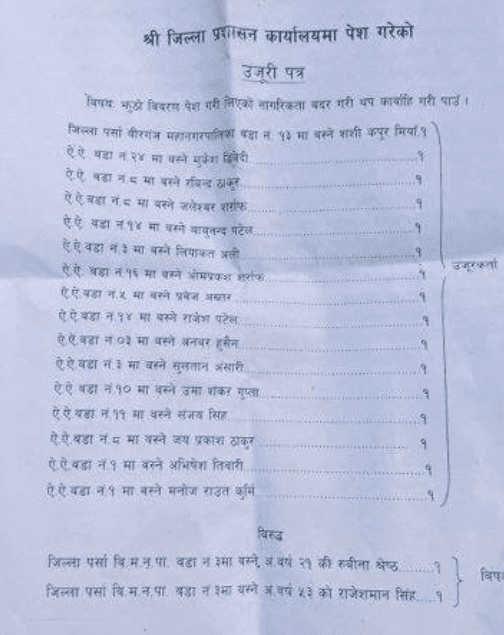 श्री जिल्ला प्रशासन कार्यालयमा पेश गरेको
उजूरी पत्र
विषयः झुठो विवरण पेश गरी लिएको नागरिकता बदर गरी थप कार्वाहि गरी पाउँ ।
जिल्ला पर्सा वीरगंज महानगरपालिका वडा नं. १३ मा बस्ने शशी कपुर मियां.१
ऐ ऐ. वडा नं.२४ मा बस्ने मुकेश द्विवेदी...............१
ऐ.ऐ. वडा नं.८ मा बस्ने रविन्द्र ठाकुर...............१
ऐ ऐ.वडा नं.८ मा बस्ने जलेश्वर शर्राफ...............१
ऐ ऐ. वडा नं.१४ मा बस्ने बाबुनन्द पटेल...............१
ऐ ऐ वडा नं.३ मा बस्ने लियाकत अली...............१
ऐ.ऐ. वडा नं.१६ मा बस्ने ओमप्रकाश शर्राफ...............१ उजूरकर्ता
ऐ ऐ वडा नं.५ मा बस्ने प्रवेज अख्तर...............१
ऐ ऐ.वडा नं.१४ मा बस्ने राजेश पटेल...............१
ऐ ऐ.वडा नं.०३ मा बस्ने अनवर हुसैन...............१
ऐ ऐ.वडा नं.३ मा बस्ने सुलतान अंसारी...............१
ऐ ऐ वडा नं.१० मा बस्ने उमा शंकर गुप्ता...............१
ऐ ऐ वडा नं.११ मा बस्ने संजय सिंह...............१
ऐ.ऐ.वडा नं.८ मा बस्ने जय प्रकाश ठाकुर...............१
ऐ.ऐ.वडा नं.१ मा बस्ने अभिषेश तिवारी...............१
ऐ.ऐ.वडा नं.१ मा बस्ने मनोज राउत कुर्मि...............१
विरुद्ध
जिल्ला पर्सा वि.म.न.पा. वडा नं ३मा बस्ने अं.वर्ष २१ की रुवीना श्रेष्ठ........१
जिल्ला पर्सा वि.म.न.पा. वडा नं ३मा बस्ने अं.वर्ष ५३ को राजेशमान सिंह....१